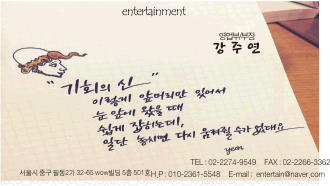 entertainment
영업부부장
강주연
"기회의 신"
이렇게 앞머리만 있어서
눈 앞에 왔을 때
쉽게 잡히는데,
일단 놓치면 다시 움켜쥘 수가 없대요
yeon
TEL : 02-2274-9549 FAX : 02-2266-3362
서울시 중구 필동2가 32-66 wow빌딩 5층 501호 H.P : 010-2361-5548 E-mail : entertain@naver.com